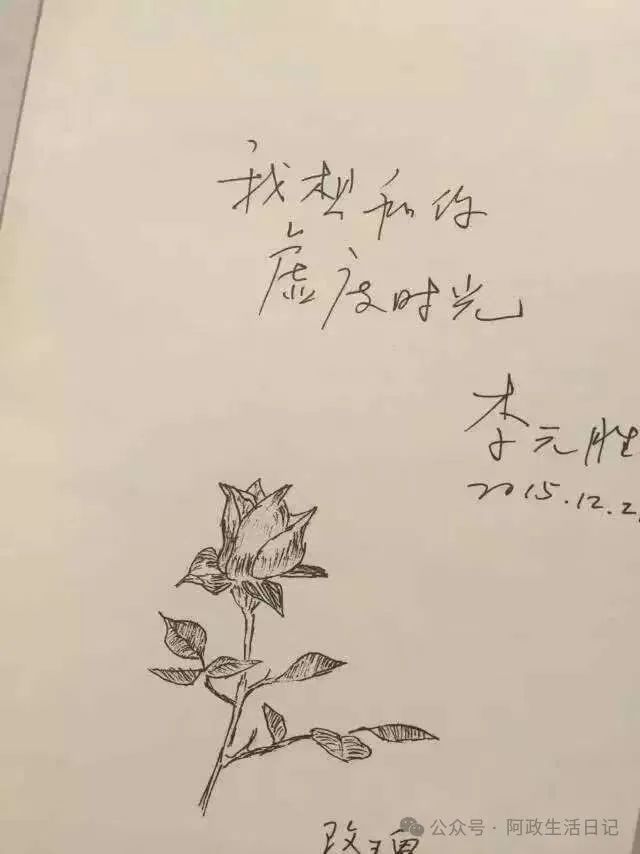 我想和你
虚度时光
李元胜
2015.12.2
公众号·阿政生活日记